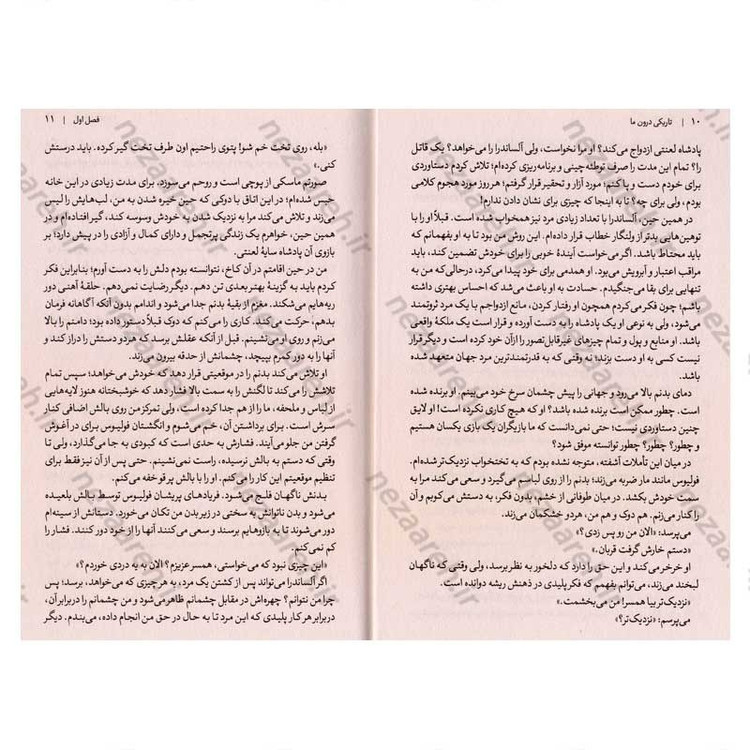 ۱۰ | تاریکی درون ما
پادشاه لعنتی ازدواج می‌کند؟ او مرا نخواست، ولی آلساندرا را می‌خواهد؟ یک قاتل
را؟ تمام این مدت را صرف توطئه‌چینی و برنامه‌ریزی کرده‌ام؛ تلاش کردم دستاوردی
برای خودم دست و پا کنم؛ مورد آزار و تحقیر قرار گرفتم؛ هر روز مورد هجوم کلامی
بودم، ولی برای چه؟ تا به اینجا که چیزی برای نشان دادن ندارم!
در همین حین، آلساندرا با تعداد زیادی مرد نیز همخواب شده است. قبلاً او را با
توهین‌هایی بدتر از ولنگار خطاب قرار داده‌ام. این روش من بود تا به او بفهمانم که
باید محتاط باشد. اگر می‌خواست آیندهٔ خوبی را برای خودش تضمین کند، باید
مراقب اعتبار و آبرویش می‌بود. او همدمی برای خود پیدا می‌کرد، درحالی‌که من به
تنهایی برای بقا می‌جنگیدم. حسادت به او باعث می‌شد که احساس بهتری داشته
باشم؛ چون فکر می‌کردم همچون او رفتار کردن، مانع ازدواجم با یک مرد ثروتمند
می‌شود، ولی به نوعی او یک پادشاه را به دست آورده و قرار است یک ملکهٔ واقعی
شود. او منابع و پول و تمام چیزهای غیرقابل‌تصور را از آن خود کرده است و دیگر قرار
نیست کسی به او دست بزند؛ نه وقتی که به قدرتمندترین مرد جهان متعهد شده
باشد.
دمای بدنم بالا می‌رود و جهانی را پیش چشمان سرخ خود می‌بینم. او برنده شده
است. چطور ممکن است برنده شده باشد؟ او که هیچ کاری نکرده است! او لایق
چنین دستاوردی نیست؛ حتی نمی‌دانست که ما بازیگران یک بازی یکسان هستیم
و چطور؟ چطور؟ چطور توانسته موفق شود؟
در میان این تأملات آشفته، متوجه نشده بودم که به تختخواب نزدیک‌تر شده‌ام.
فولیوس مانند مار ضربه می‌زند؛ بدنم را از روی لباسم می‌گیرد و سعی می‌کند مرا به
سمت خودش بکشد. در میان طوفانی از خشم، بدون فکر، به دستش می‌کوبم و آن
را کنار می‌زنم. هم دوک و هم من، هر دو خشکمان می‌زند.
می‌پرسد: «الان من رو پس زدی؟»
«دستم خارش گرفت قربان.»
او خرخر می‌کند و این حق را دارد که دلخور به نظر برسد، ولی وقتی که ناگهان
لبخند می‌زند، می‌توانم بفهمم که فکر پلیدی در ذهنش ریشه دوانده است.
«نزدیک‌تر بیا همسر! من می‌بخشمت.»
می‌پرسم: «نزدیک‌تر؟»
فصل اول | ۱۱
«بله، روی تخت خم شو! پتوی راحتیم اون طرف تخت گیر کرده. باید درستش
کنی.»
صورتم ماسکی از پوچی است و روحم می‌سوزد. برای مدت زیادی در این خانه
حبس شده‌ام؛ در این اتاق با دوکی که حین خیره شدن به من، لب‌هایش را لیس
می‌زند و تلاش می‌کند مرا به نزدیک شدن به خودش وسوسه کند، گیر افتاده‌ام و در
همین حین، خواهرم یک زندگی پرتجمل و دارای کمال و آزادی را در پیش دارد؛ بر
بازوی آن پادشاه سایهٔ لعنتی.
من در حین اقامتم در آن کاخ، نتوانسته بودم دلش را به دست آورم؛ بنابراین فکر
کردم باید به گزینهٔ بهتر بعدی تن دهم. دیگر رضایت نمی‌دهم. حلقهٔ آهنی دور
ریه‌هایم می‌شکند. مغزم از بقیهٔ بدنم جدا می‌شود و اندامم بدون آنکه آگاهانه فرمان
بدهم، حرکت می‌کند. کاری را می‌کنم که دوک قبلاً دستور داده بود؛ دامنم را بالا
می‌زنم و روی او می‌نشینم. قبل از آنکه عقلش برسد که هر دو دستش را دراز کند و
آنها را به دور کمرم بپیچد، چشمانش از حدقه بیرون می‌زند.
او تلاش می‌کند بدنم را در موقعیتی قرار دهد که خودش می‌خواهد؛ سپس تمام
تلاشش را می‌کند تا لگنش را به سمت بالا فشار دهد که خوشبختانه هنوز لایه‌هایی
از لباس و ملحفه، ما را از هم جدا کرده است، ولی تمرکز من روی بالش اضافی کنار
سرش است. برای برداشتن آن، خم می‌شوم و انگشتان فولیوس برای در آغوش
گرفتن من جلو می‌آیند. فشارش به حدی است که کبودی به جا می‌گذارد، ولی تا
وقتی که دستم به بالش نرسیده، راست نمی‌نشینم. حتی پس از آن نیز فقط برای
تنظیم موقعیتم این کار را می‌کنم. او را با بالش پر قو خفه می‌کنم.
بدنش ناگهان فلج می‌شود. فریادهای پریشان فولیوس توسط بالش بلعیده
می‌شود و بدن ناتوانش به سختی در زیر بدن من تکان می‌خورد. دستانش از سینه‌ام
دور می‌شوند تا به بازوهایم برسند و سعی می‌کنند آنها را از خود دور کنند. فشار را
کم نمی‌کنم.
«این چیزی نبود که می‌خواستی، همسر عزیزم؟ الان به یه دردی خوردم؟»
اگر آلساندرا می‌تواند پس از کشتن یک مرد، به هر چیزی که می‌خواهد، برسد؛ پس
چرا من نتوانم؟ چهره‌اش در مقابل چشمانم ظاهر می‌شود و من چشمانم را در برابر آن،
در برابر هر کار پلیدی که این مرد تا به حال در حق من انجام داده، می‌بندم. دیگر
nezaareh.ir